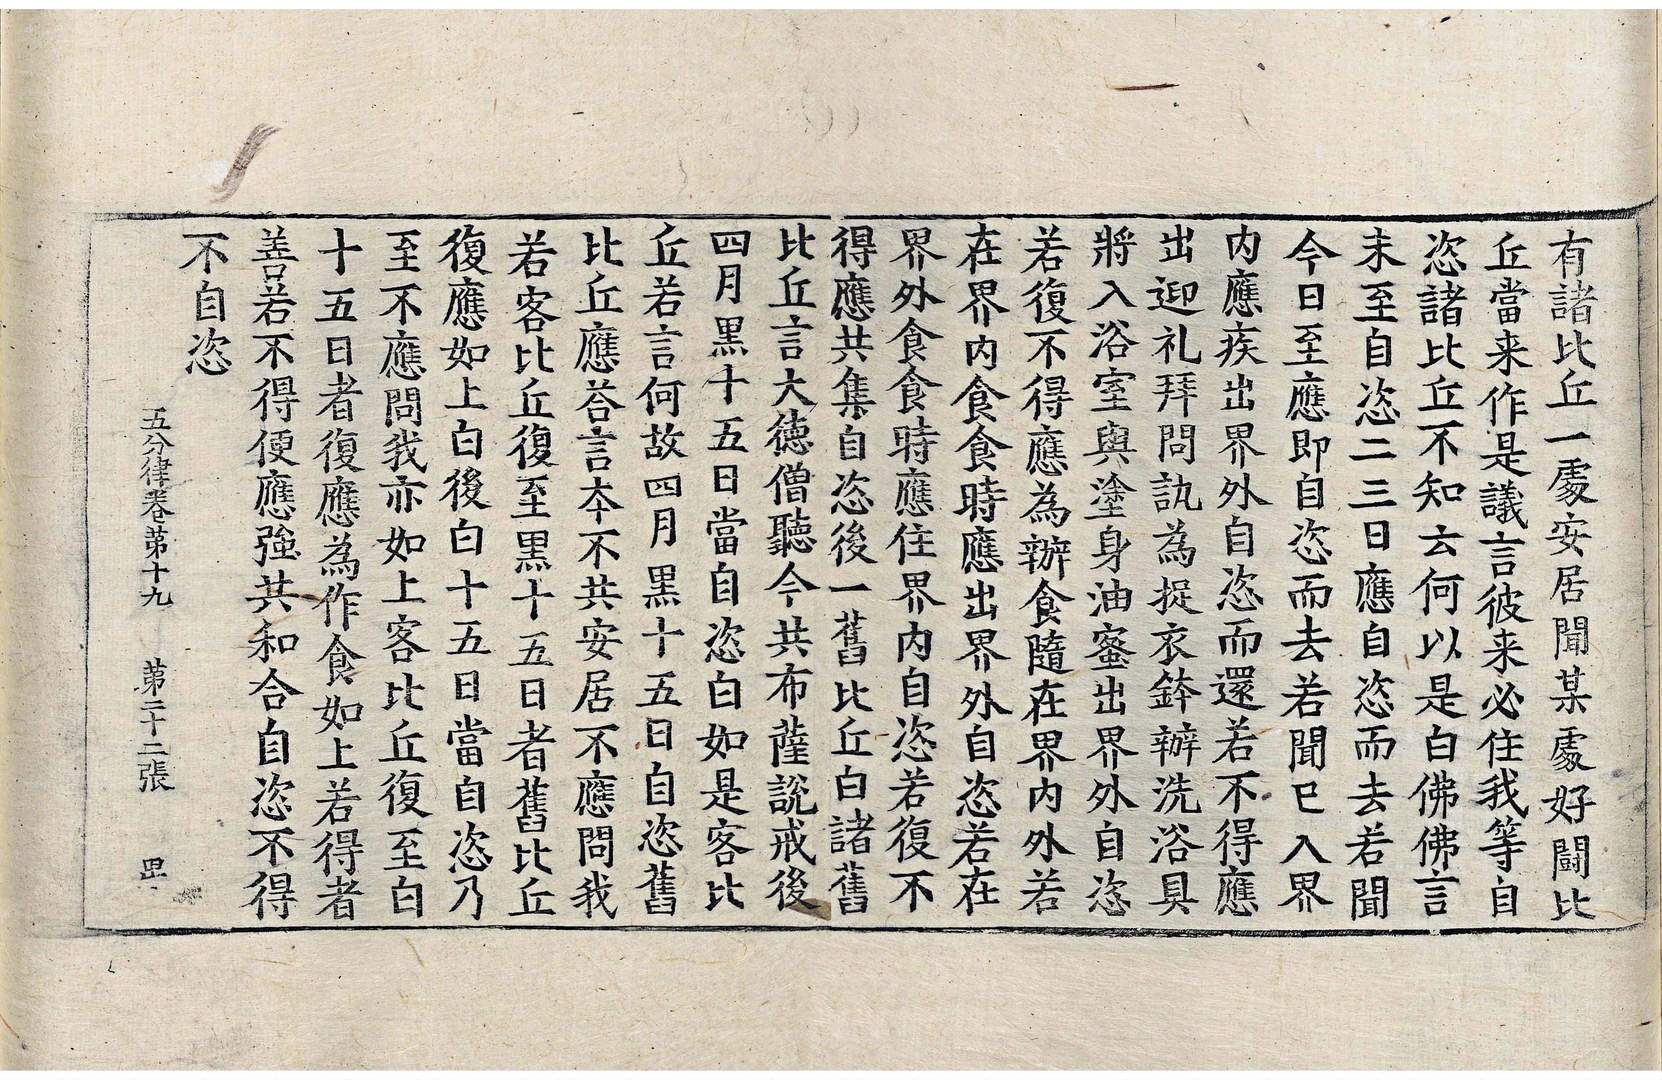 有諸比丘一處安居聞某處好鬪比
丘當来作是議言彼来必住我等自
恣諸比丘不知云何以是白佛佛言
未至自恣二三日應自恣而去若聞
今日至應即自恣而去若聞已入界
内應疾出界外自恣而還若不得應
出迎礼拜問訊為捉衣鉢辦洗浴具
將入浴室與塗身油蜜出界外自恣
若復不得應為辦食隨在界内外若
在界内食食時應出界外自恣若在
界外食食時應住界内自恣若復不
得應共集自恣後一舊比丘白諸舊
比丘言大德僧聽今共布薩說戒後
四月黒十五日當自恣白如是客比
丘若言何故四月黒十五日自恣舊
比丘應荅言夲不共安居不應問我
若客比丘復至黒十五日者舊比丘
復應如上白後白十五日當自恣乃
至不應問我亦如上客比丘復至白
十五日者復應為作食如上若得者
善若不得便應強共和合自恣不得
不自恣
五分律卷第十九 第二十二張